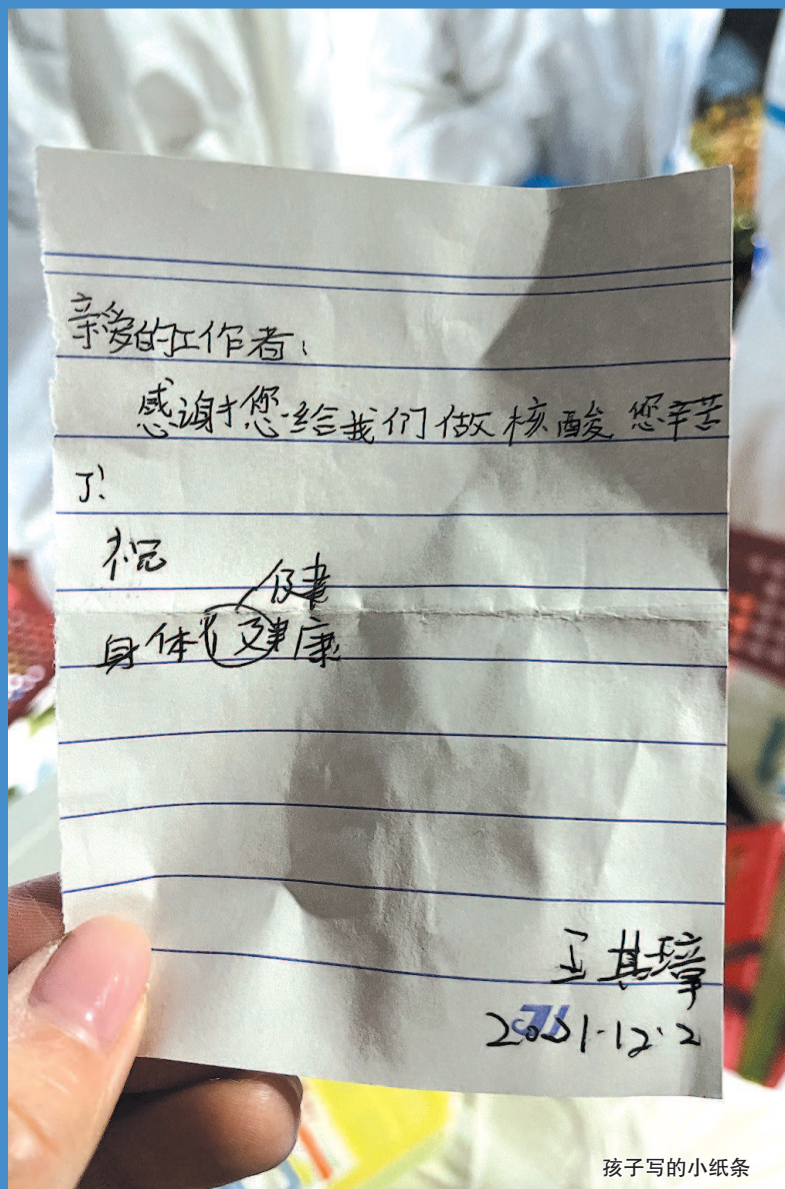 亲爱的工作者：
感谢您给我们做核酸 您辛苦
了！
祝
健
身体健康
王其璋
2021.12.2
孩子写的小纸条